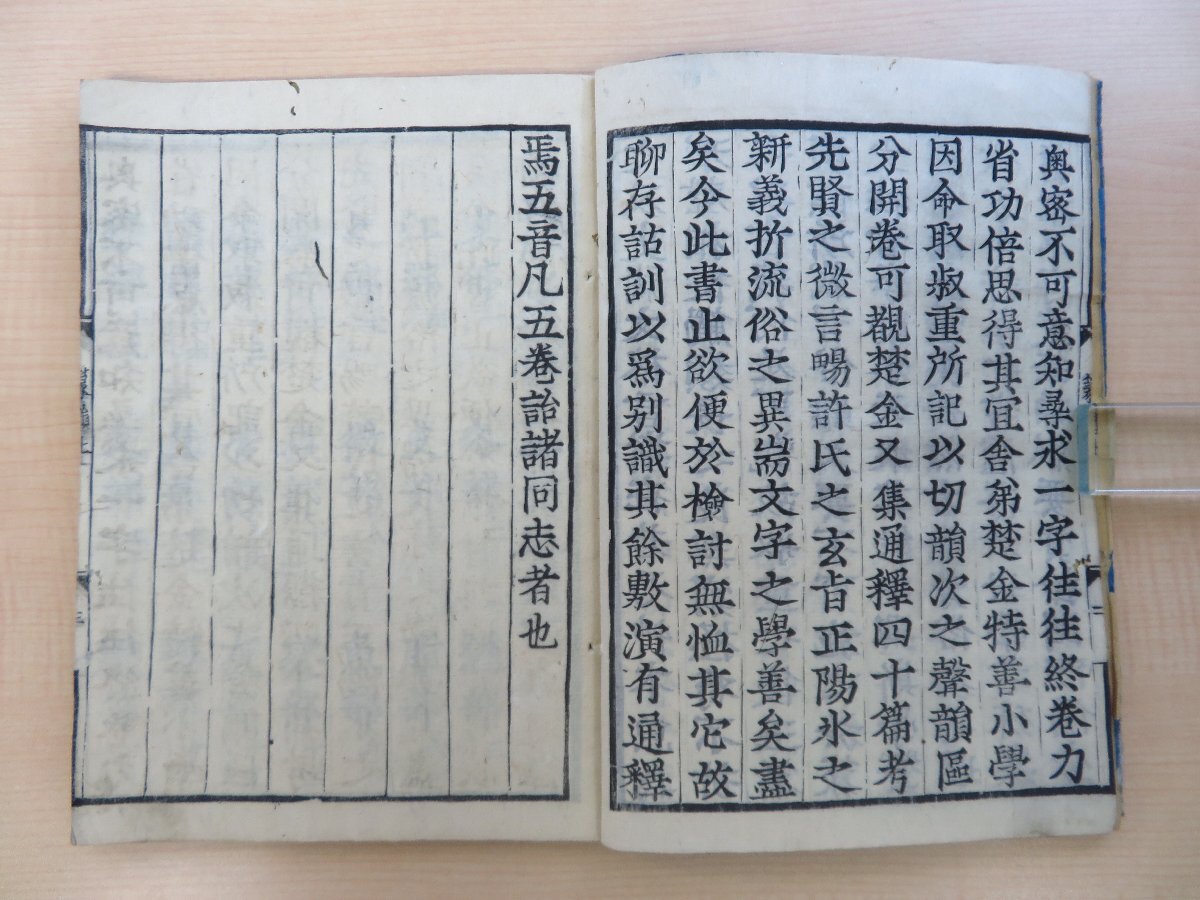 奥密不可意知尋求一字往往終卷力
省功倍思得其宜舍弟楚金特善小學
因命取叔重所記以切韻次之聲韻區
分開卷可覩楚金又集通釋四十篇考
先賢之微言暢許氏之玄旨正陽氷之
新義折流俗之異耑文字之學善矣盡
矣今此書止欲便於檢討無恤其它故
聊存詁訓以爲别識其餘敷演有通釋
焉五音凡五卷詒諸同志者也